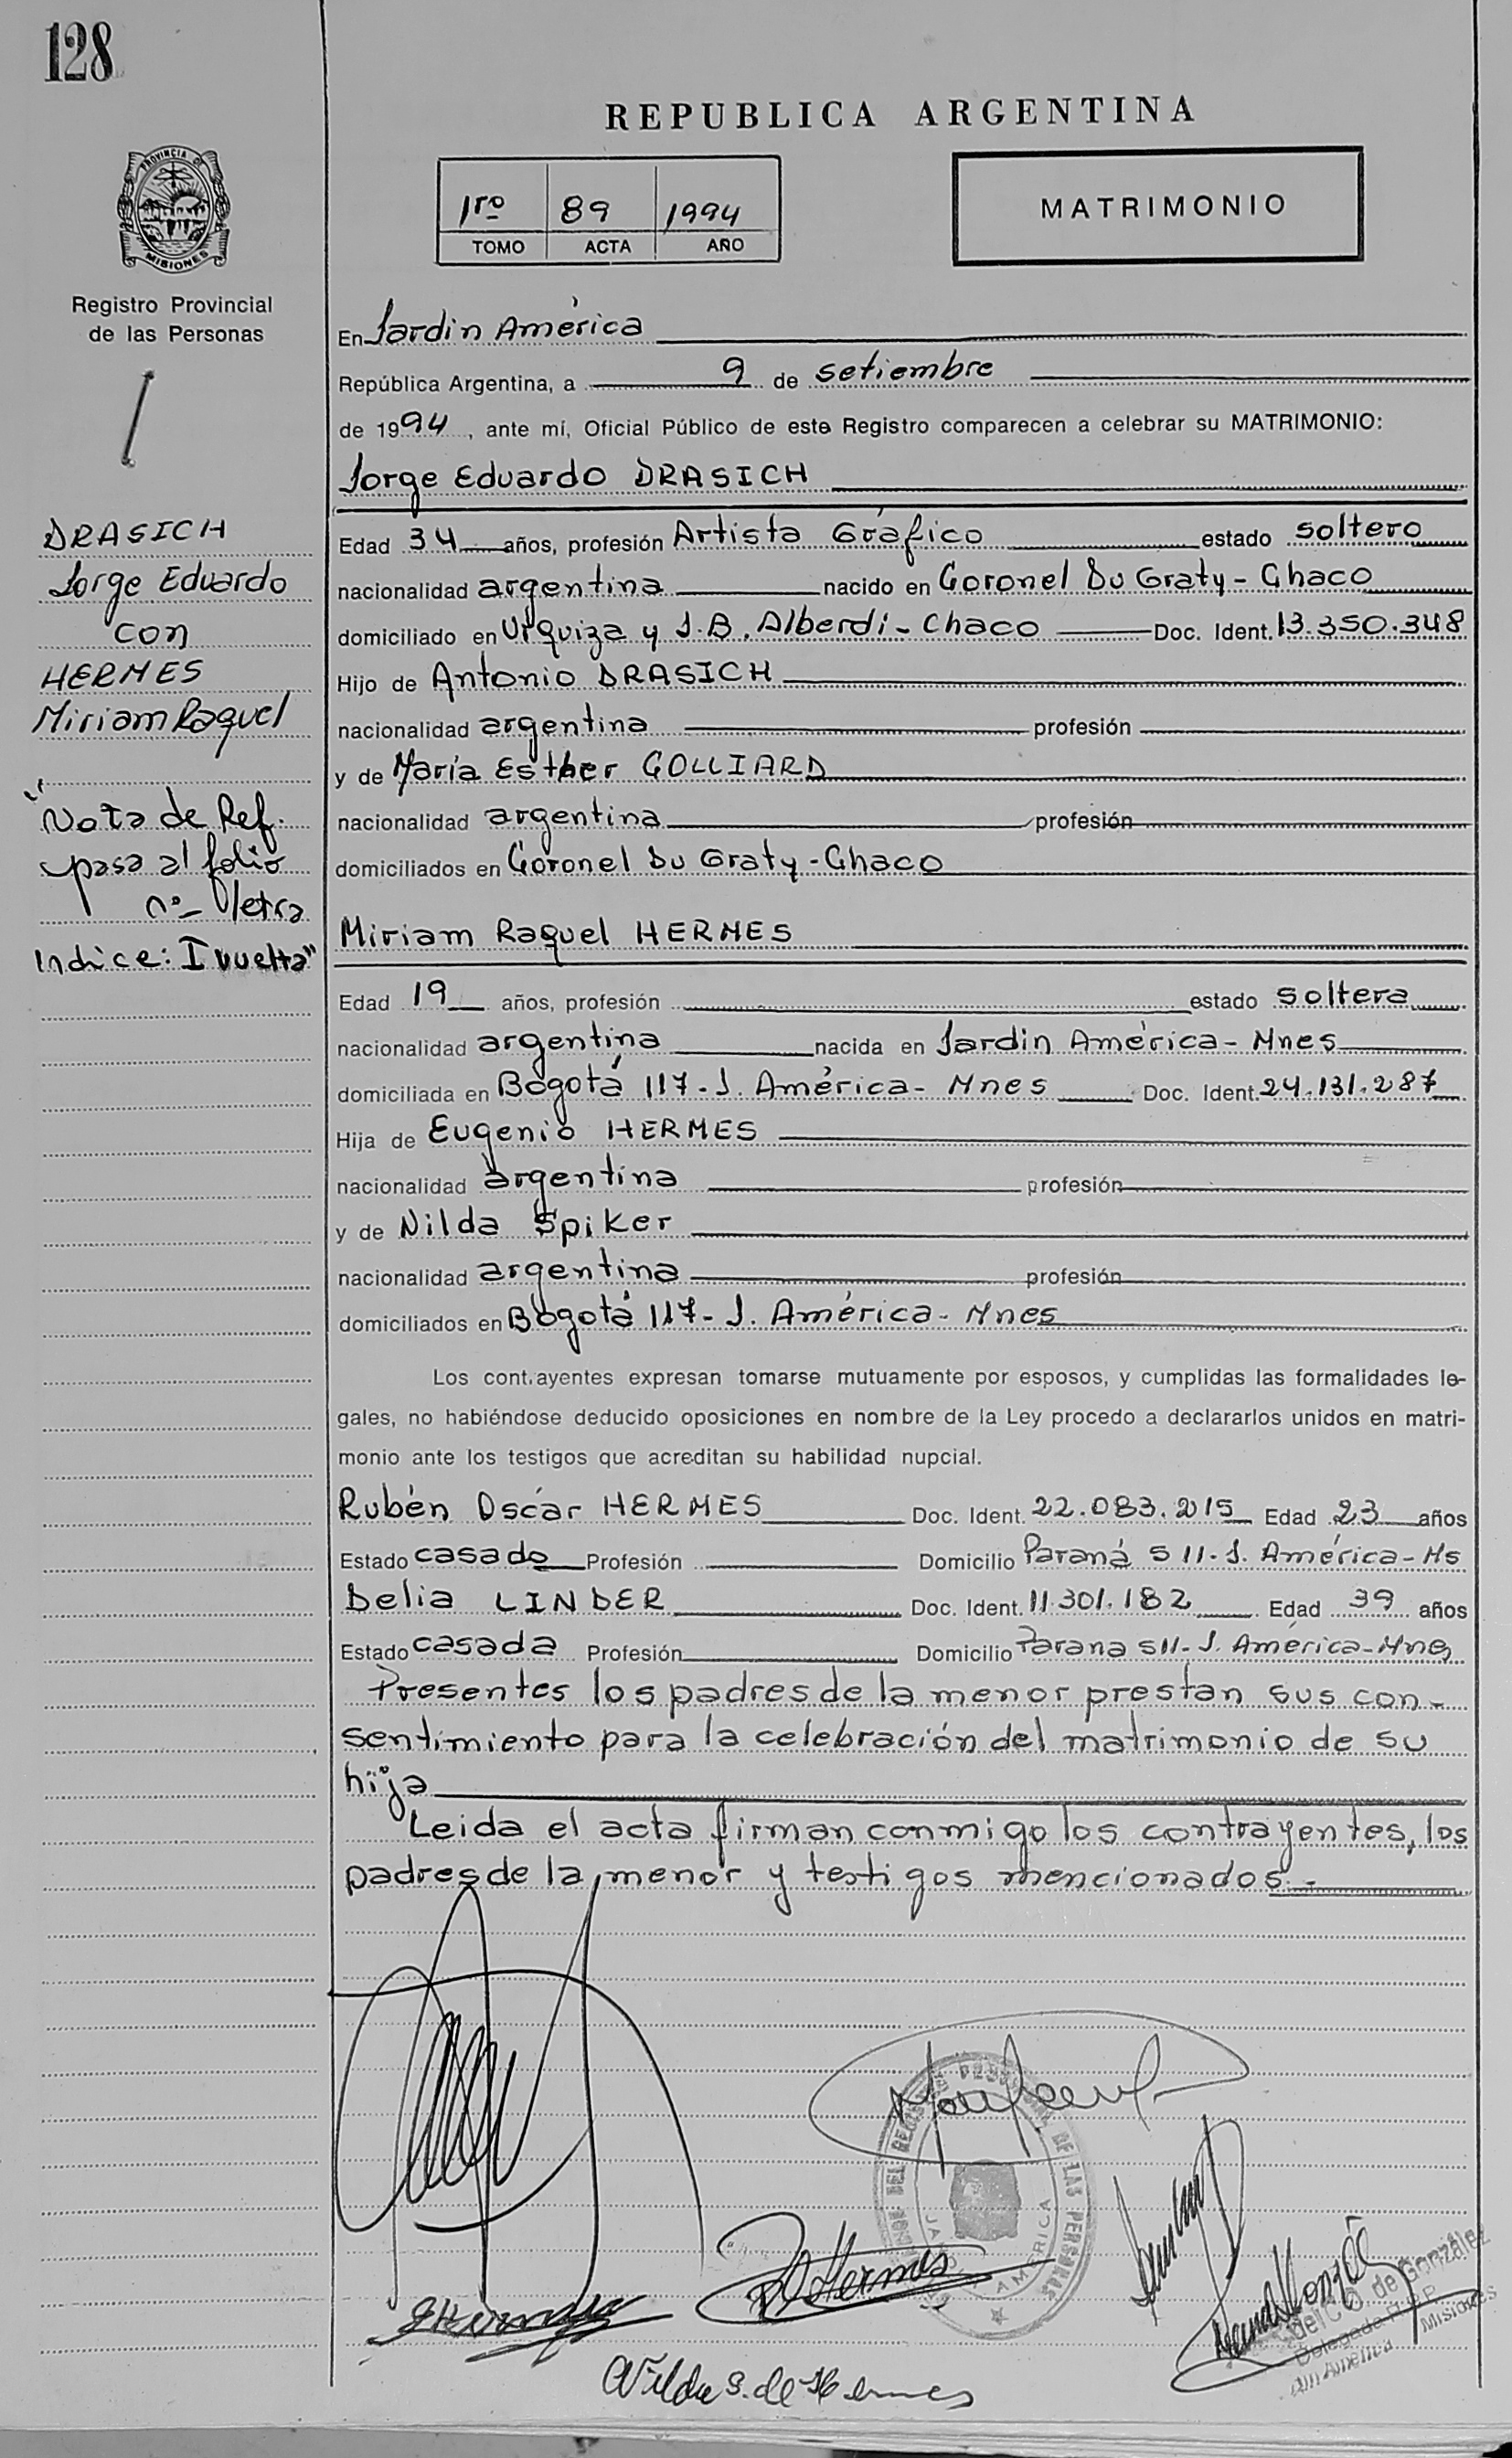 128
REPUBLICA ARGENTINA
PROVINCIA DE MISIONES
1ro 89 1994
TOMO ACTA AÑO
MATRIMONIO
Registro Provincial
de las Personas
DRASICH
Jorge Eduardo
con
HERMES
Miriam Raquel
"Nota de Ref.
pasa al folio
nº letra
Indice: I vuelta"
En Jardín América
República Argentina, a 9 de setiembre
de 1994, ante mí, Oficial Público de este Registro comparecen a celebrar su MATRIMONIO:
Jorge Eduardo DRASICH
Edad 34 años, profesión Artista Gráfico estado soltero
nacionalidad argentina nacido en Coronel Du Graty - Chaco
domiciliado en Urquiza y J.B. Alberdi - Chaco Doc. Ident. 13.350.348
Hijo de Antonio DRASICH
nacionalidad argentina profesión
y de María Esther GOLLIARD
nacionalidad argentina profesión
domiciliados en Coronel Du Graty - Chaco
Miriam Raquel HERMES
Edad 19 años, profesión estado soltera
nacionalidad argentina nacida en Jardín América - Mnes
domiciliada en Bogotá 117 - J. América - Mnes Doc. Ident. 24.131.287
Hija de Eugenio HERMES
nacionalidad argentina profesión
y de Nilda Spiker
nacionalidad argentina profesión
domiciliados en Bogotá 117 - J. América - Mnes
Los contrayentes expresan tomarse mutuamente por esposos, y cumplidas las formalidades le-
gales, no habiéndose deducido oposiciones en nombre de la Ley procedo a declararlos unidos en matri-
monio ante los testigos que acreditan su habilidad nupcial.
Rubén Oscar HERMES Doc. Ident. 22.083.215 Edad 23 años
Estado casado Profesión Domicilio Paraná 511 - J. América - Ms
Delia LINDER Doc. Ident. 11.301.182 Edad 39 años
Estado casada Profesión Domicilio Parana 511 - J. América - Mnes
Presentes los padres de la menor prestan sus con-
sentimiento para la celebración del matrimonio de su
hija
Leida el acta firman conmigo los contrayentes, los
padres de la menor y testigos mencionados.-
DEL REGISTRO PROVINCIAL DE LAS PERSONAS
JARDIN AMERICA
Hermes
de González
Delegada R.P.P.
América Misiones
Nilda S. de Hermes